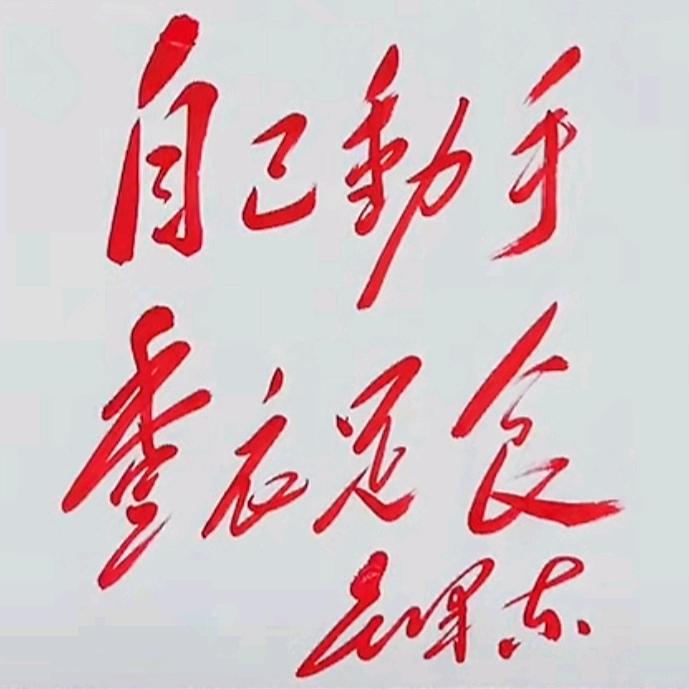 自己動手
丰衣足食
毛泽东